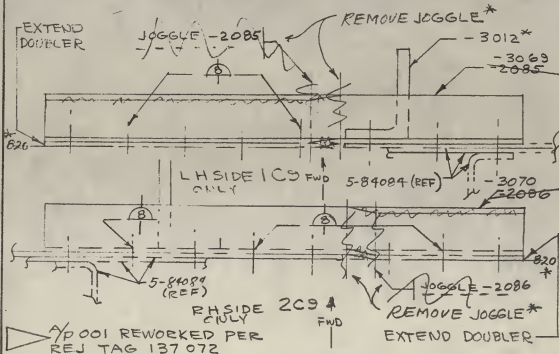 EXTEND
DOUBLER
JOGGLE -2085
REMOVE JOGGLE*
-3012*
-3069
-2085
8
*
826
LH SIDE 1C9 FWD
ONLY
5-84084 (REF)
-3070
-2086
8
8
820
*
5-84084
(REF)
JOGGLE -2086
RH SIDE 2C9
ONLY
FWD
REMOVE JOGGLE*
EXTEND DOUBLER
A/P 001 REWORKED PER
REJ TAG 137 072